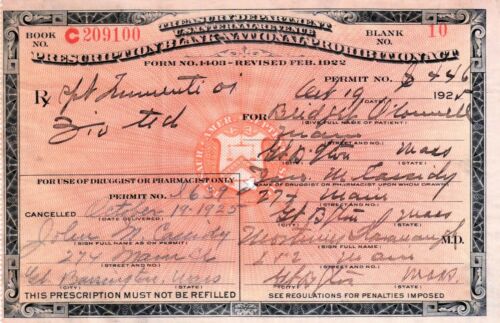 TREASURY DEPARTMENT
U.S. INTERNAL REVENUE
BOOK NO. C209100
BLANK NO. 10
PRESCRIPTION BLANK-NATIONAL PROHIBITION ACT
FORM NO. 1403-REVISED FEB. 1922
PERMIT NO. 6446
Oct 19 1925
(DATE)
Rx Spt Frumenti
FOR Bridget O'Connell
(GIVE FULL NAME OF PATIENT)
Main
(STREET AND NO.)
Mass
(CITY) (STATE)
FOR USE OF DRUGGIST OR PHARMACIST ONLY
Jno. M. Cassidy
(NAME OF DRUGGIST OR PHARMACIST UPON WHOM DRAWN)
PERMIT NO. 8639
274 Main
(STREET AND NO.)
CANCELLED Oct 19-1925
(DATE DELIVERED)
Mass
(CITY) (STATE)
John M. Cassidy
(SIGN FULL NAME AS ON PERMIT)
M.D.
(SIGN FULL NAME)
274 Main
(STREET AND NO.)
282 Main
(STREET AND NO.)
Gt Barrington, Mass
(CITY) (STATE)
Mass
(CITY) (STATE)
THIS PRESCRIPTION MUST NOT BE REFILLED
SEE REGULATIONS FOR PENALTIES IMPOSED